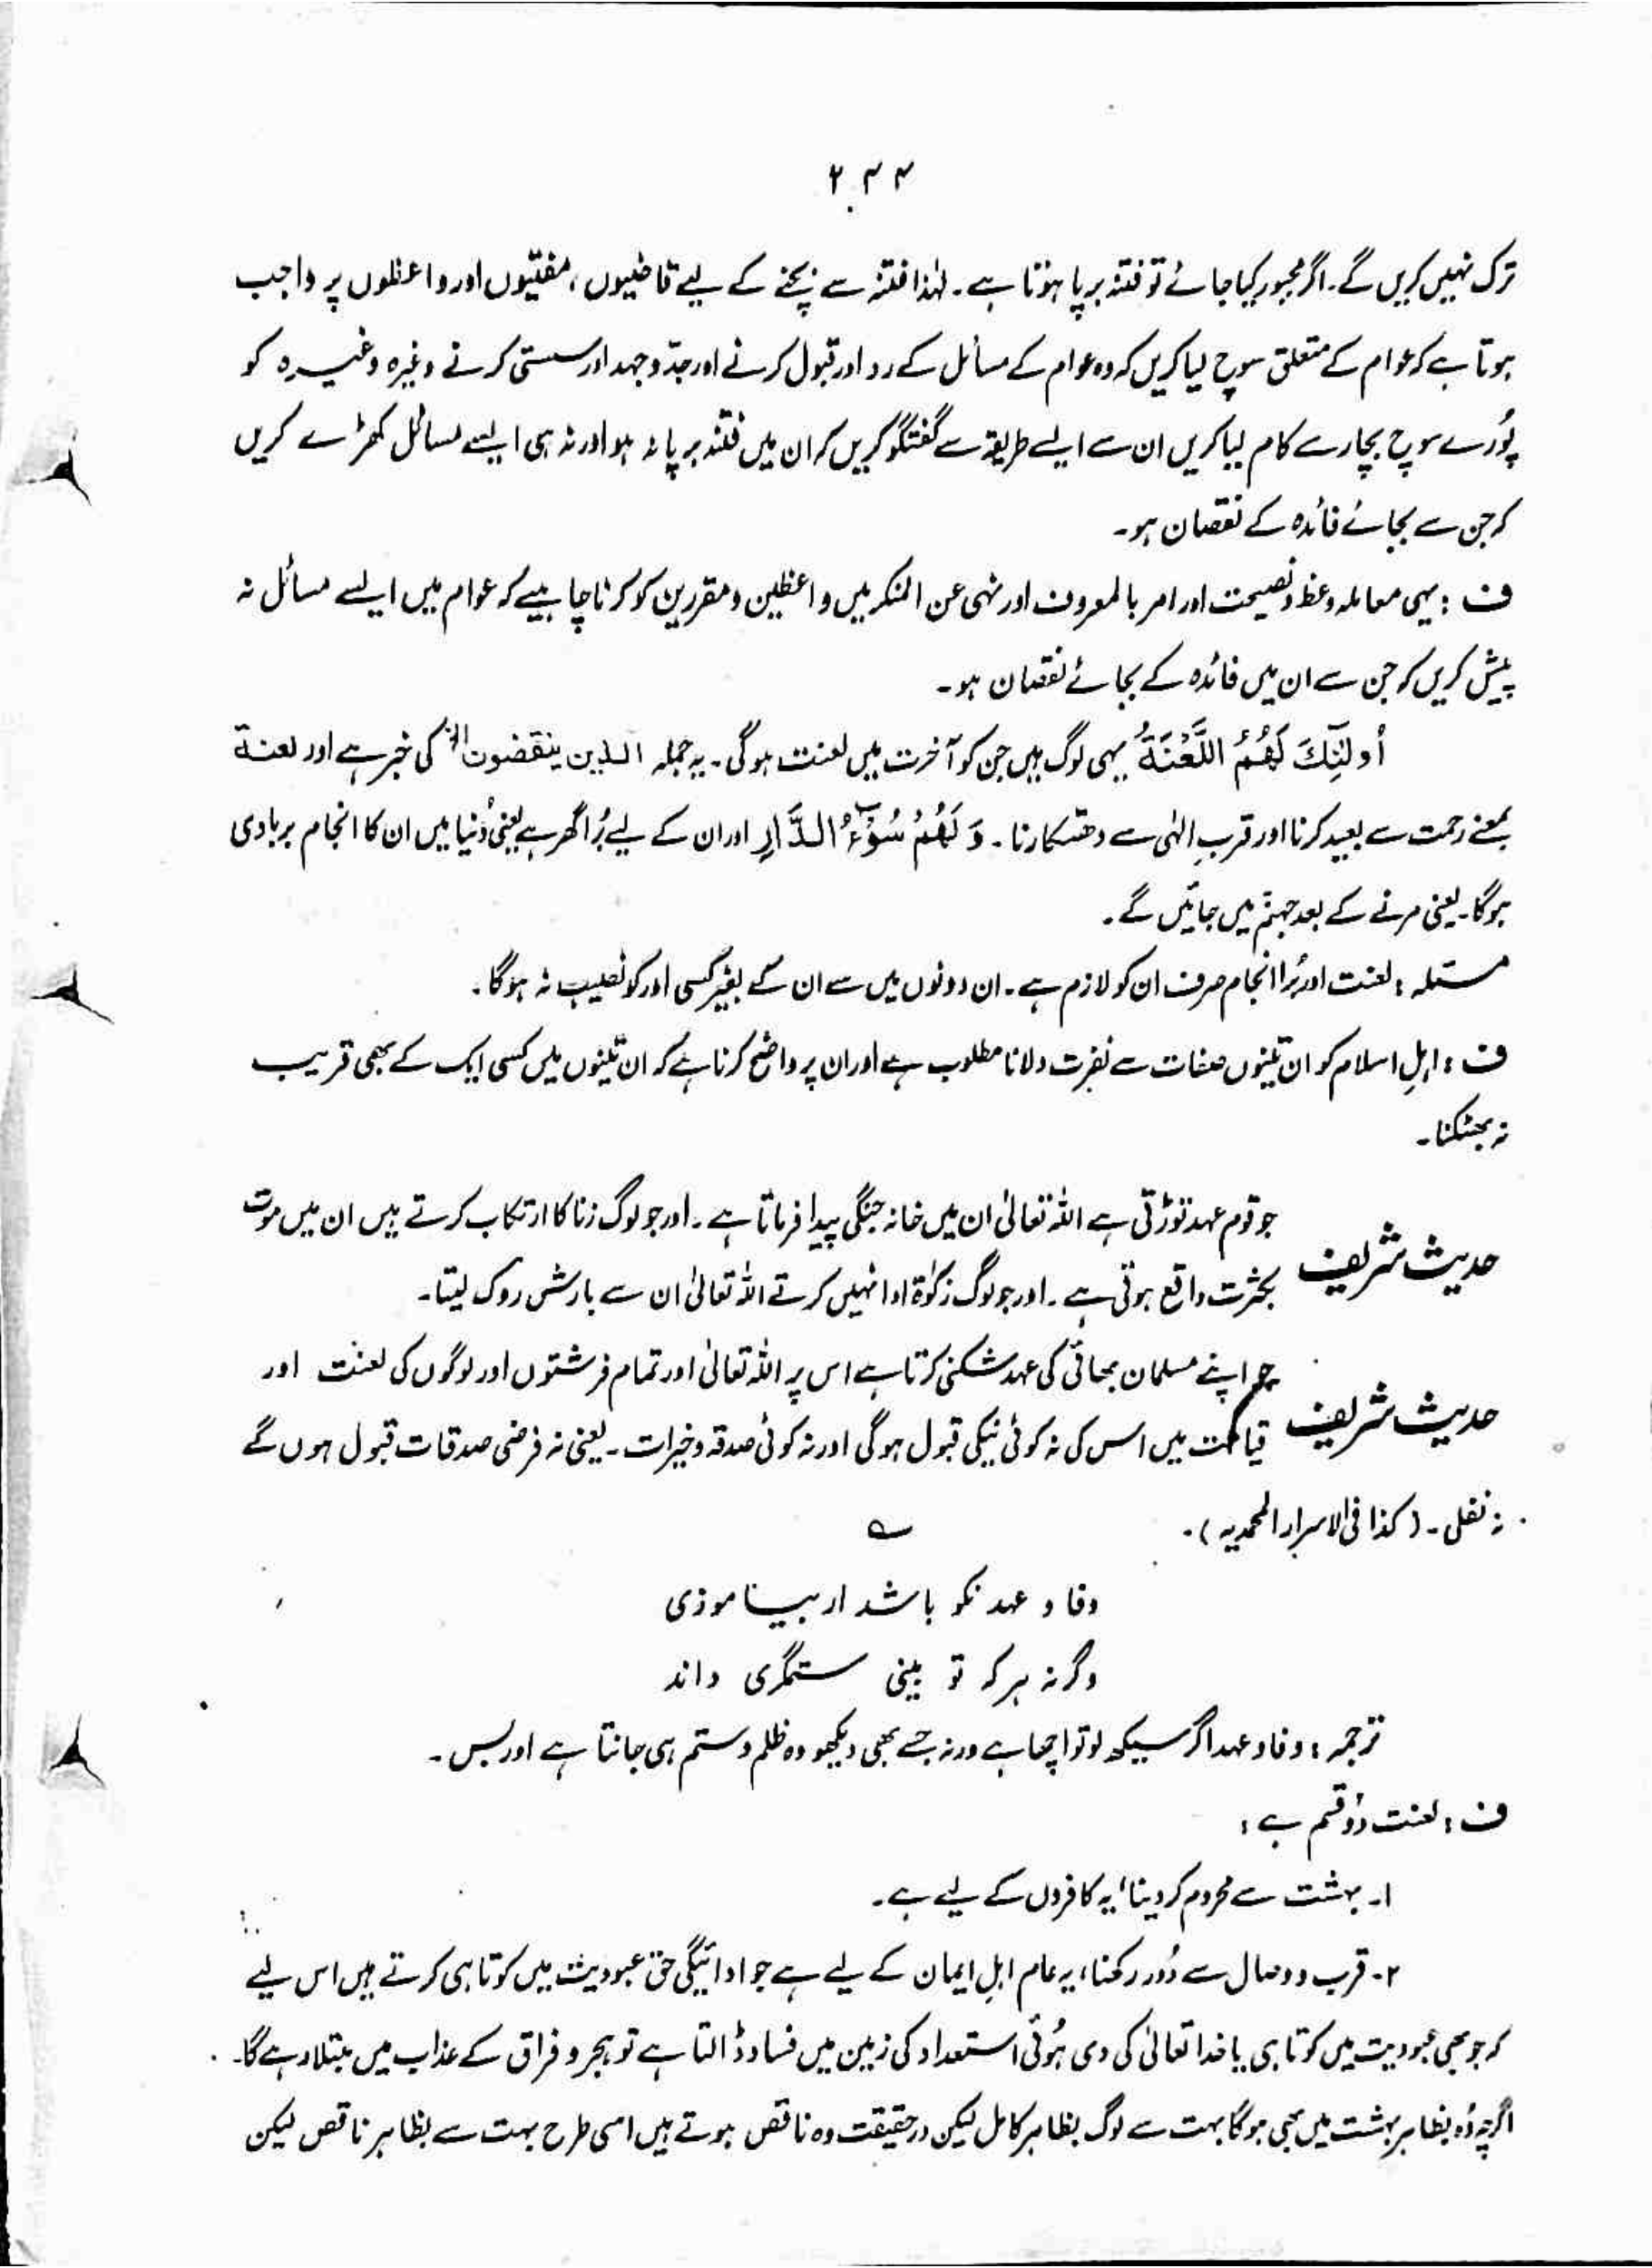 ۲۴۴
ترک نہیں کریں گے۔ اگر مجبور کیا جائے تو فتنہ برپا ہوتا ہے۔ لہٰذا فتنہ سے بچنے کے لیے قاضیوں، مفتیوں اور واعظوں پر واجب
ہوتا ہے کہ عوام کے متعلق سوچ لیا کریں کہ وہ عوام کے مسائل کے رد اور قبول کرنے اور جدّ و جہد اور سستی کرنے وغیرہ وغیرہ کو
پُورے سوچ بچار سے کام لیا کریں ان سے ایسے طریقہ سے گفتگو کریں کہ ان میں فتنہ برپا نہ ہو اور نہ ہی ایسے مسائل کھڑے کریں
کہ جن سے بجائے فائدہ کے نقصان ہو۔
ف : یہی معاملہ وعظ و نصیحت اور امر بالمعروف اور نہی عن المنکر میں واعظین و مقررین کو کرنا چاہیے کہ عوام میں ایسے مسائل نہ
پیش کریں کہ جن سے ان میں فائدہ کے بجائے نقصان ہو۔
أُولَٰئِكَ لَهُمُ اللَّعْنَةُ یہی لوگ ہیں جن کو آخرت میں لعنت ہوگی۔ یہ جملہ الذین ینقضون الخ کی خبر ہے اور لعنۃ
بمعنے رحمت سے بعید کرنا اور قربِ الٰہی سے دھتکارنا۔ وَلَهُمْ سُوْٓءُ الدَّارِ اور ان کے لیے بُرا گھر ہے یعنی دُنیا میں ان کا انجام بربادی
ہوگا۔ یعنی مرنے کے بعد جہنّم میں جائیں گے۔
مسئلہ : لعنت اور بُرا انجام صرف ان کو لازم ہے۔ ان دونوں میں سے ان کے بغیر کسی اور کو نصیب نہ ہوگا۔
ف : اہلِ اسلام کو ان تینوں صفات سے نفرت دلانا مطلوب ہے اور ان پر واضح کرنا ہے کہ ان تینوں میں کسی ایک کے بھی قریب
نہ بھٹکنا۔
جو قوم عہد توڑتی ہے اللہ تعالیٰ ان میں خانہ جنگی پیدا فرماتا ہے۔ اور جو لوگ زنا کا ارتکاب کرتے ہیں ان میں موت
حدیث شریف
بکثرت واقع ہوتی ہے۔ اور جو لوگ زکوٰۃ ادا نہیں کرتے اللہ تعالیٰ ان سے بارش روک لیتا۔
جو اپنے مسلمان بھائی کی عہد شکنی کرتا ہے اس پر اللہ تعالیٰ اور تمام فرشتوں اور لوگوں کی لعنت اور
حدیث شریف
قیامت میں اس کی نہ کوئی نیکی قبول ہوگی اور نہ کوئی صدقہ و خیرات۔ یعنی نہ فرضی صدقات قبول ہوں گے
نہ نفلی۔ (کذا فی الاسرار المحمدیہ)۔
وفا و عہد نکو باشد ار بیاموزی
وگرنہ ہر کہ تو بینی ستمگری داند
ترجمہ : وفا و عہد اگر سیکھ لو تو اچھا ہے ورنہ جسے بھی دیکھو وہ ظلم و ستم ہی جانتا ہے اور بس۔
ف : لعنت دُو قسم ہے :
۱۔ بہشت سے محروم کر دینا، یہ کافروں کے لیے ہے۔
۲۔ قرب و وصال سے دُور رکھنا، یہ عام اہلِ ایمان کے لیے ہے جو ادائیگی حق عبودیت میں کوتاہی کرتے ہیں اس لیے
کہ جو بھی عبودیت میں کوتاہی یا خدا تعالیٰ کی دی ہُوئی استعداد کی زمین میں فساد ڈالتا ہے تو ہجر و فراق کے عذاب میں مبتلا رہے گا۔
اگرچہ وُہ بظاہر بہشت میں بھی ہوگا بہت سے لوگ بظاہر کامل لیکن درحقیقت وہ ناقص ہوتے ہیں اسی طرح بہت سے بظاہر ناقص لیکن